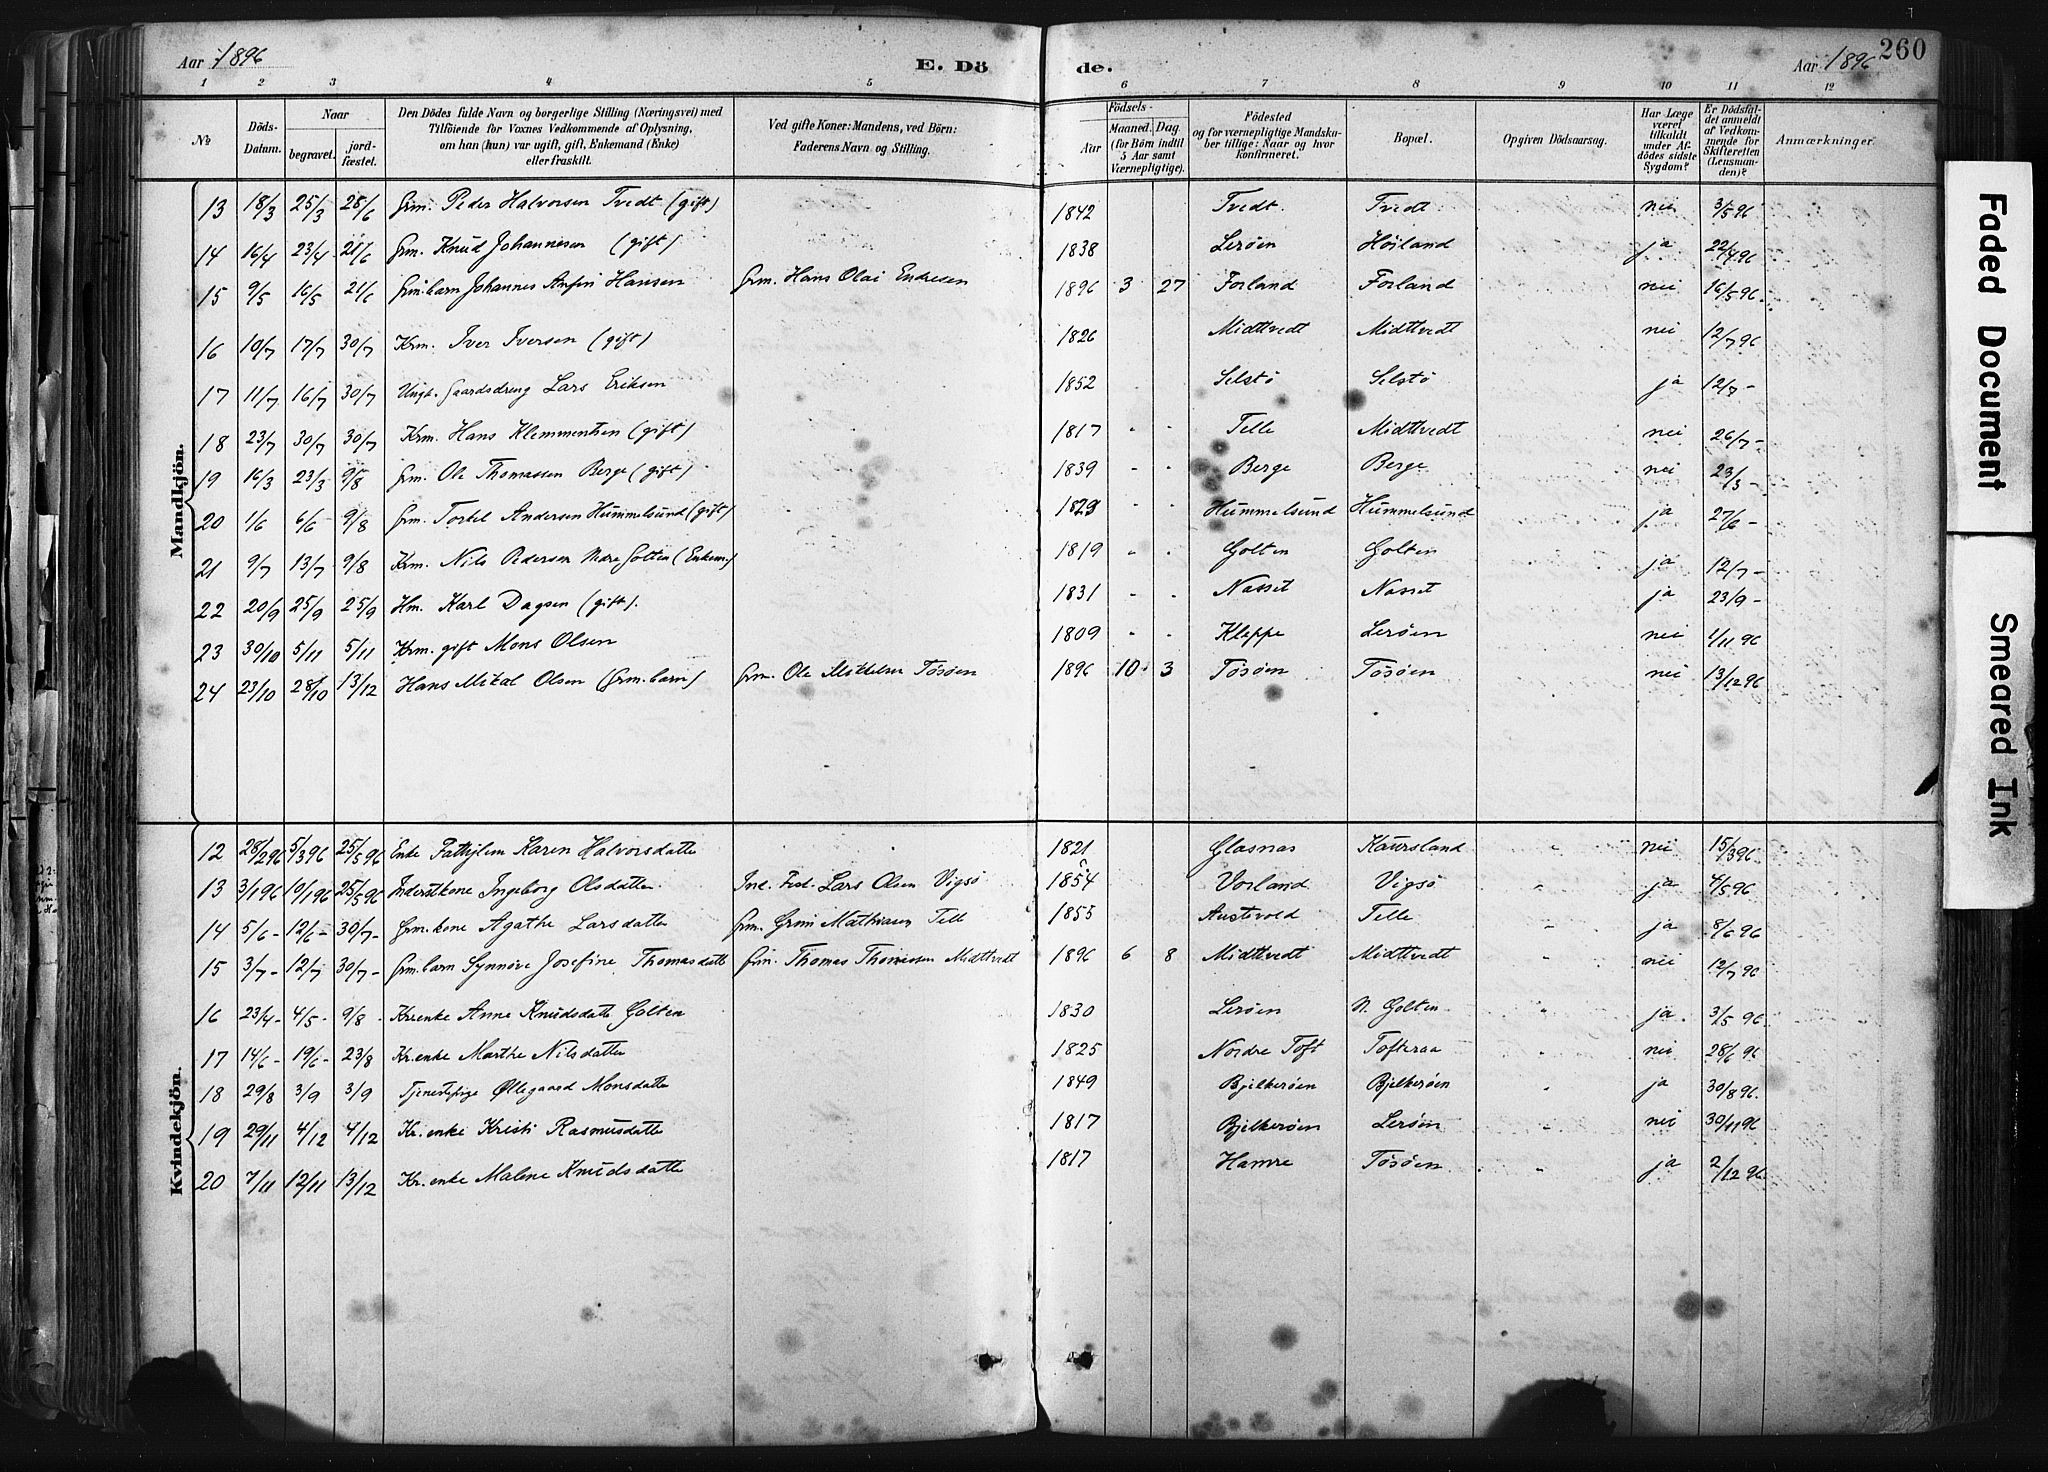 Aar 1896
E. Dö
de.
Aar 1896
260
1 2 3 4 5 6 7 8 9 10 11 12
No
Döds-Datum.
Naar
begravet.
jordfæstet.
Den Dödes fulde Navn og borgerlige Stilling (Næringsvei) med
Tilföiende for Voxnes Vedkommende af Oplysning,
om han (hun) var ugift, gift, Enkemand (Enke)
eller fraskilt.
Ved gifte Koner: Mandens, ved Börn:
Faderens Navn og Stilling.
Födsels-
Aar
Maaned. Dag
(for Börn indtil
5 Aar samt
Værnepligtige).
Födested
og for værnepligtige Mandska-
ber tillige: Naar og hvor
konfirmeret.
Bopæl.
Opgiven Dödsaarsag.
Har Læge
været
tilkaldt
under Af-
dödes sidste
Sygdom?
Er Dödsfal-
det anmeldt
af Vedkom-
mende for
Skifteretten
(Lensman-
den)?
Anmærkninger
Mandkjön.
13 18/3 25/3 28/6 Grm. Peder Halvorsen Tvedt (gift) 1842 Tvedt Tvedt nei 3/5 96
14 16/4 23/4 21/6 Grm. Knud Johannesen (gift) 1838 Lerøen Höiland ja 22/4 96
15 9/5 16/5 21/6 Grm. barn Johannes Anfin Hansen Grm. Hans Olai Endresen 1896 3 27 Forland Forland nei 16/5 96
16 10/7 17/7 30/7 Krm. Iver Iversen (gift) 1826 Midttvedt Midttvedt nei 12/7 96
17 11/7 16/7 30/7 Ungk. Gaardsdreng Lars Eriksen 1852 Selstö Selstö ja 12/7 -
18 23/7 30/7 30/7 Krm. Hans Klemmentsen (gift) 1817 - - Telle Midttvedt nei 26/7 -
19 16/3 23/3 9/8 Grm. Ole Thomassen Berge (gift) 1839 - - Berge Berge nei 23/3 -
20 1/6 6/6 - 9/8 Grm. Torkel Andersen Hummelsund (gift) 1823 - - Hummelsund Hummelsund ja 27/6 -
21 9/7 13/7 9/8 Krm. Nils Pedersen Ndre Golten (Enkem.) 1819 - - Golten Golten ja 12/7 -
22 20/9 25/9 25/9 Hm. Karl Dagsen (gift). 1831 - - Nasset Nasset ja 23/9 -
23 30/10 5/11 5/11 Krm. gift Mons Olsen 1809 - - Kleppe Lerøen nei 1/11 96
24 23/10 28/10 13/12 Hans Mikal Olsen (Grm. barn) Grm. Ole Mikkelsen Tösöen 1896 10 3 Tösöen Tösöen nei 13/12 96
Kvindekjön.
12 28/2 96 5/3 96 25/5 96 Enke Karen Halvorsdatter 1821 Glasnas Kaursland nei 15/3 96
13 3/1 96 19/1 96 25/5 96 Inderstkone Ingeborg Olsdatter Lars Olsen Vigsö 1854 Vorland Vigsö ja 4/5 96
14 5/6 - 12/6 - 30/7 - Grm. kone Agathe Larsdatter Grm. Grim Mathiasen Telle 1855 Austevold Telle ja 8/6 96
15 3/7 - 12/7 30/7 - Grm. barn Synnöve Josefine Thomasdatter Grm. Thomas Thomassen Midttvedt 1896 6 8 Midttvedt Midttvedt nei 12/7 96
16 23/4 - 4/5 - 9/8 - Kr.enke Anne Knudsdatter Golten 1830 Lerøen N. Golten ja 3/5 96
17 14/6 - 19/6 - 23/8 Kr. enke Marthe Nilsdatter 1825 Nordre Toft Tofteraa nei 28/6 96
18 29/8 3/9 3/9 Tjenestepige Øllegaard Monsdatter 1849 Bjelkerøen Bjelkerøen ja 30/8 96.
19 29/11 4/12 4/12 Kr. enke Kristi Rasmusdatter 1817 Bjelkerøen Lerøen nei 30/11 96
20 7/11 12/11 13/12 Kr. enke Malene Knudsdatter 1817 Hamre Tösöen ja 2/12 96
Faded Document
Smeared Ink